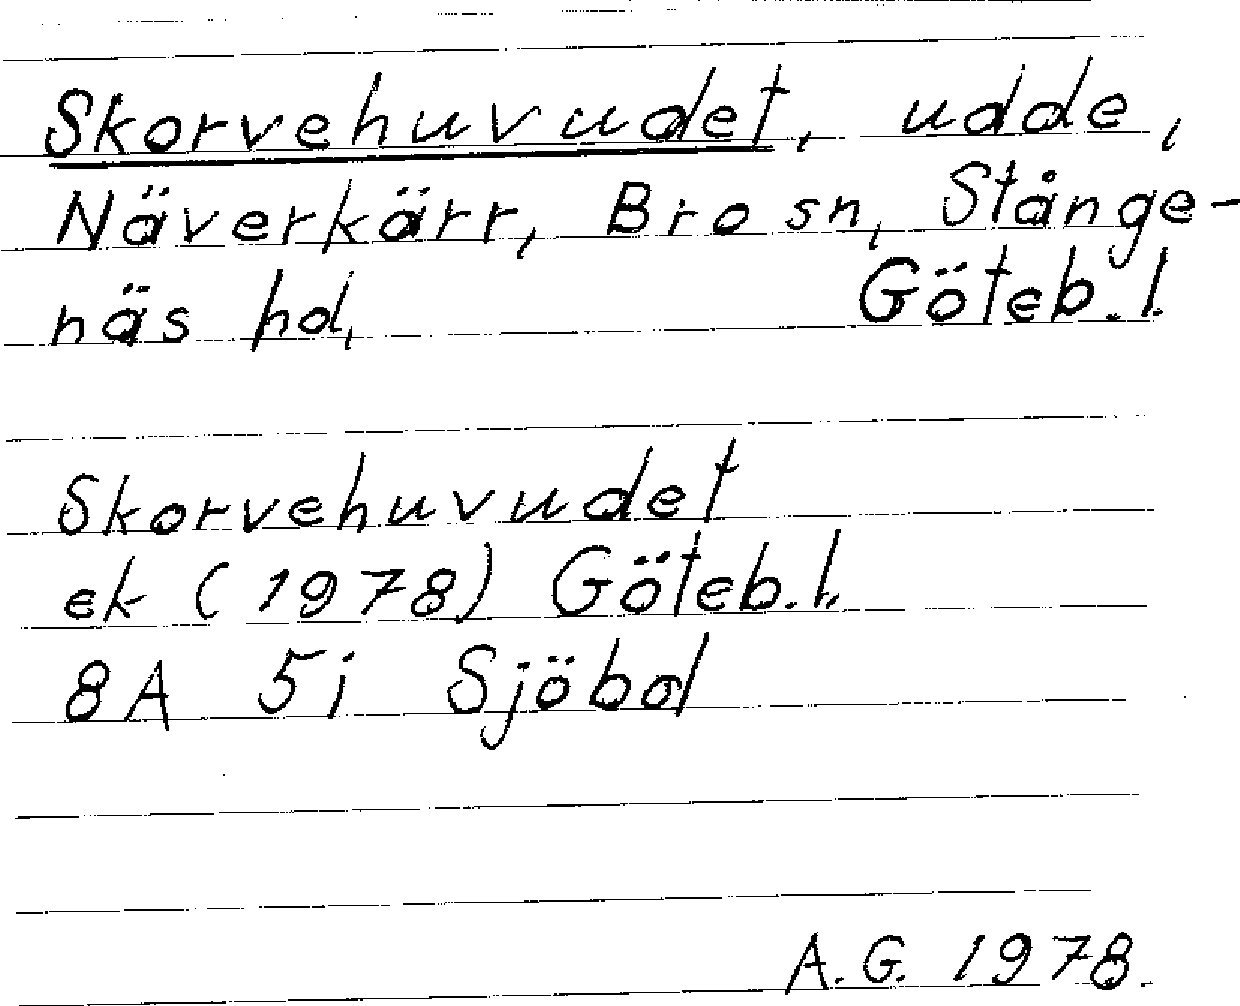 Skorvehuvudet, udde,
Näverkärr, Bro sn, Stånge-
näs hd, Göteb.l.
Skorvehuvudet
ek (1978) Göteb.l.
8A 5i Sjöbol
A.G. 1978.